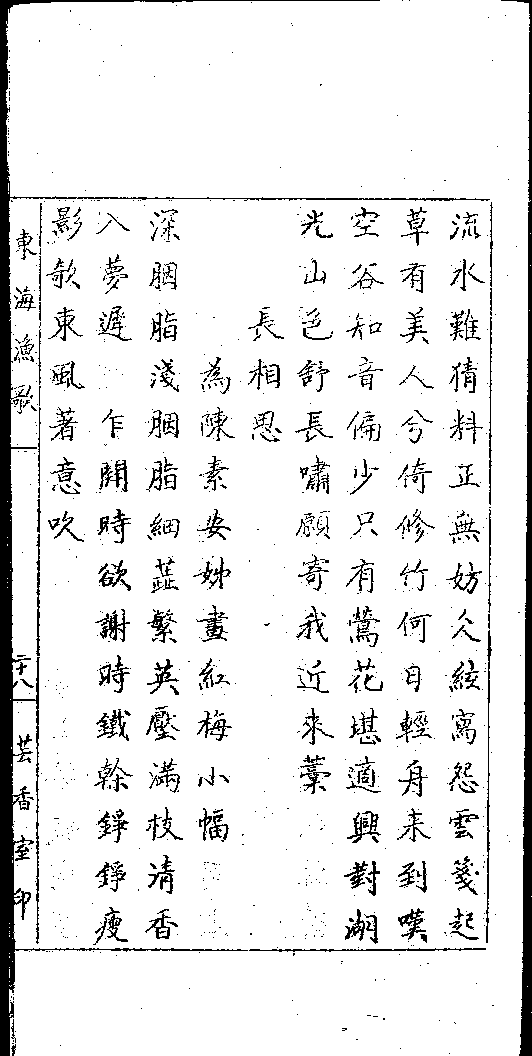 流水難猜料正無妨久絃寫怨雲箋起
草有美人兮倚修竹何日輕舟来到嘆
空谷知音偏少只有鶯花堪適興對湖
光山色舒長嘯願寄我近來藁
長相思
為陳素安姊畫紅梅小幅
深胭脂淺胭脂細蕋繁英壓滿枝清香
入夢遲　乍開時欲謝時鐵幹錚錚瘦
影欹東風著意吹
東海漁歌
二十八
芸香室印